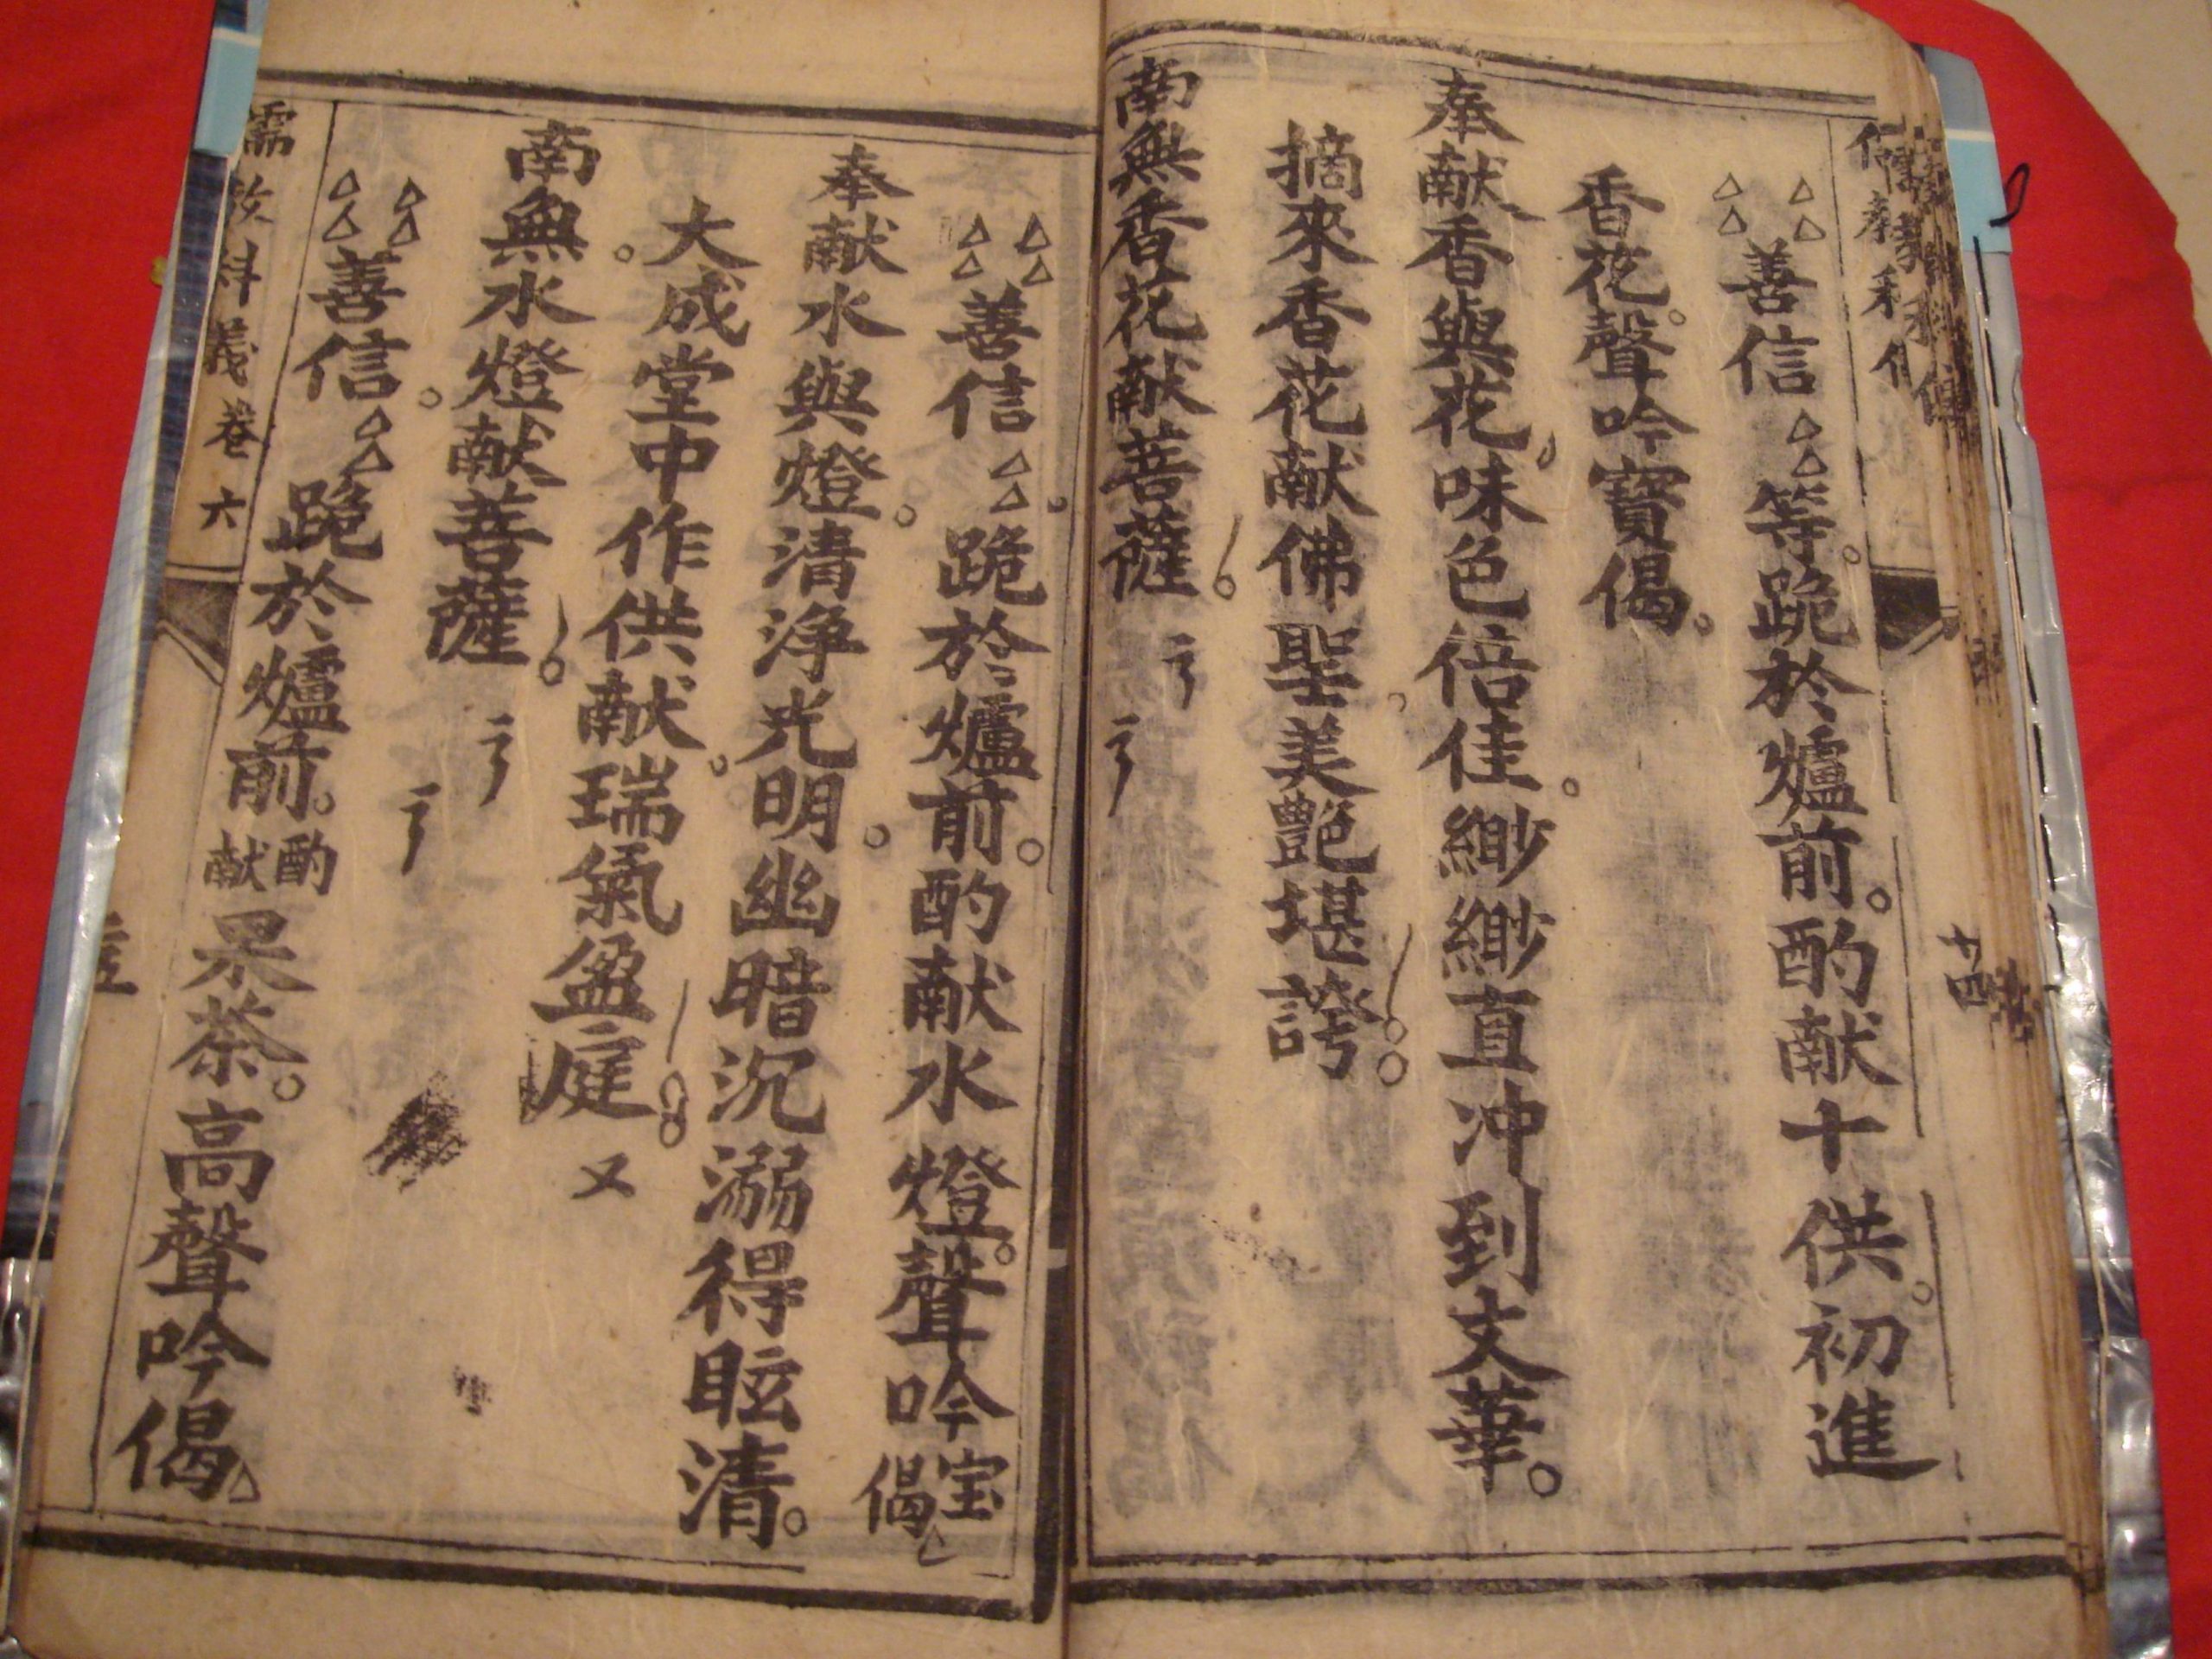 善信等跪於爐前酌献十供初進
香花聲吟寶偈
奉献香與花味色倍佳緲緲直冲到文華
摘來香花献佛聖美艷堪誇
南無香花献菩薩
善信跪於爐前酌献水燈聲吟宝偈
奉献水與燈清淨光明幽暗沉溺得眩清
大成堂中作供献瑞氣盈庭又
南無水燈献菩薩
善信跪於爐前酌献果茶高聲吟偈
儒教科義卷六